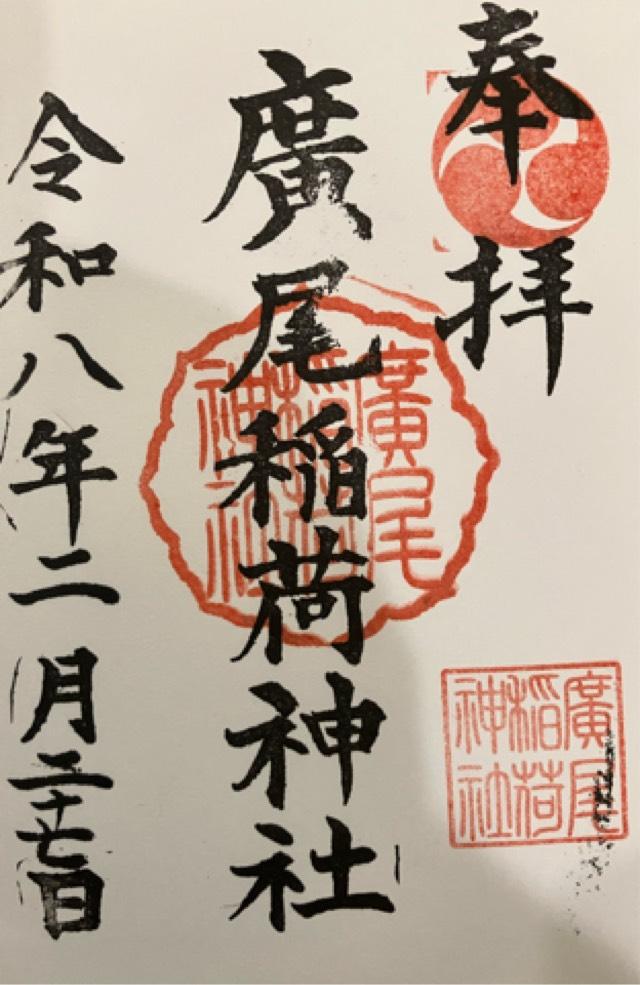 奉拝
廣尾稲荷神社
令和八年二月二十七日
廣尾
稲荷
神社
廣尾
稲荷
神社